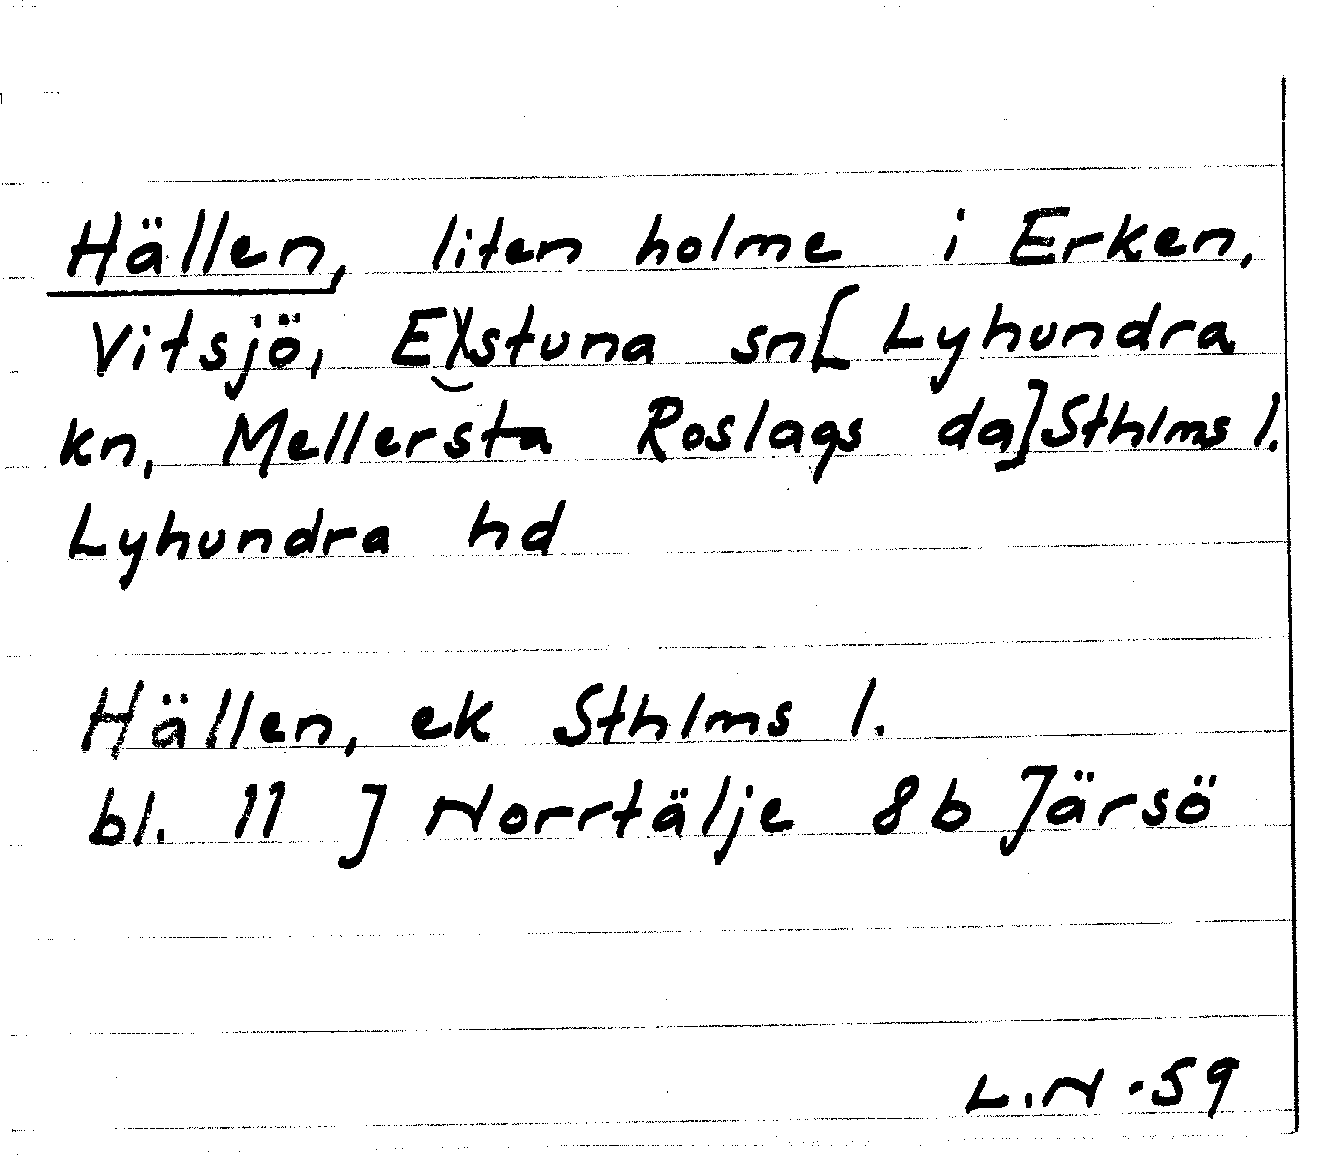 Hällen, liten holme i Erken,
Vitsjö, Estuna sn [Lyhundra
kn, Mellersta Roslags da] Sthlms l.
Lyhundra hd
Hällen, ek Sthlms l.
bl. 11 J Norrtälje 8b Järsö
L.N -59